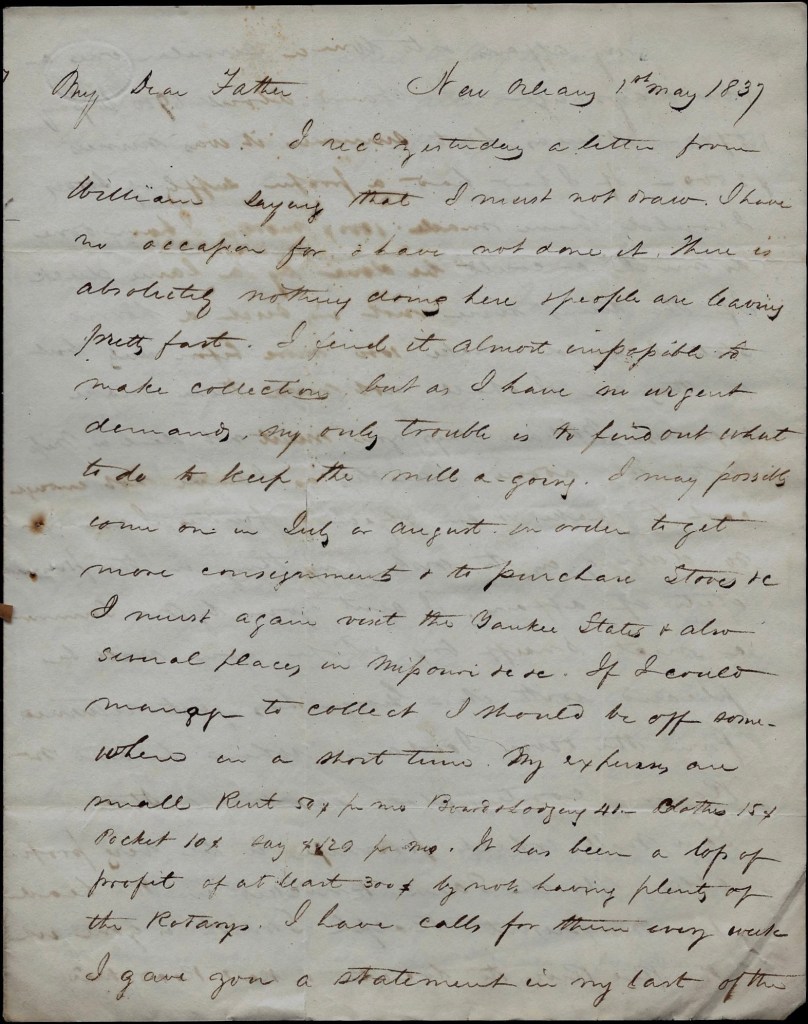 My Dear Father New Orleans 1st May 1837
I recd yesterday a letter from
William saying that I must not draw. I have
no occasion for & have not done it. There is
absolutely nothing doing here & people are leaving
pretty fast. I find it almost impossible to
make collections, but as I have no urgent
demands, my only trouble is to find out what
to do to keep the mill a-going. I may possibly
come on in July or August in order to get
more consignments & to purchase Stoves &c
I must again visit the Yankee States & also
several places in Missouri &c &c. If I could
manage to collect I should be off some-
where in a short time. My expenses are
small Rent 50$ pr mo Board & Lodging 45 Clothes 15$
Pocket 10$ say $120 pr mo. It has been a loss of
profit of at least 300$ by not having plenty of
the Rotarys. I have calls for them every week
I gave you a statement in my last of the